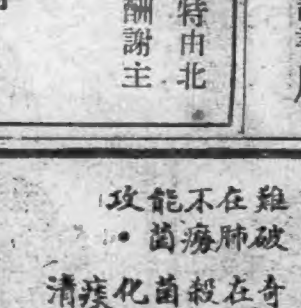 特由北
酬謝主
難在不能攻
破肺癆菌•
奇在殺菌化痰清